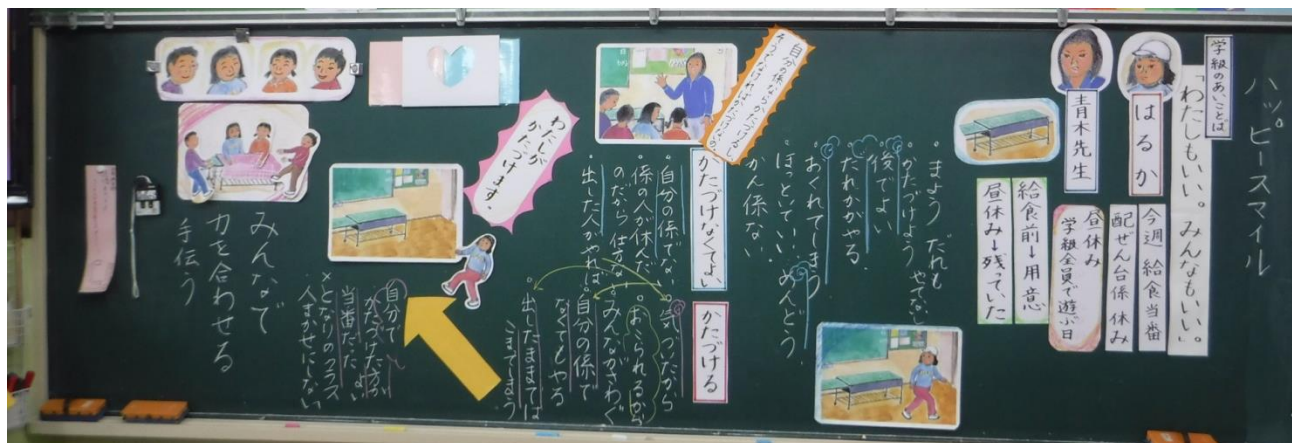 ハッピースマイル
学級のあいことば
「わたしもいい。みんなもいい」。
はるか
今週 給食当番
配ぜん台係 休み
昼休み
学級全員で遊ぶ日
青木先生
給食前→用意
昼休み→残っていた
・まよう だれも
やってない
・かたづけよう
・後でよい
・だれかがやる
・おくれてしまう
・ほっといていい
・めんどう
・かん係ない
自分の係ならかたづけるし、
かたづけなくてよい
・自分の係でない
・係の人が休んだ
のだから 仕方ない
・出した人がやれば
かたづける
・気づいたから
・おこられるから
・みんながさわぐ
・自分の係で
なくてもやる
・出したままでは
こまってしまう
わたしが
かたづけます。
自分で
かたづけた方が
よい
当番だった
×となりのクラス
人まかせにしない
みんなで
力を合わせる
手伝う